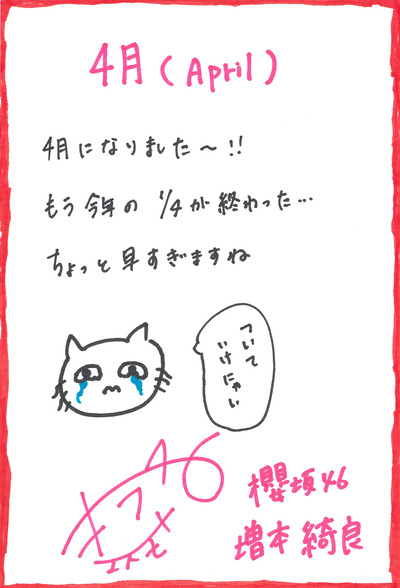 4月(April)
4月になりました〜!!
もう今年の 1/4が終わった…
ちょっと早すぎますね
ついて
いけにゃい
櫻坂46
増本綺良